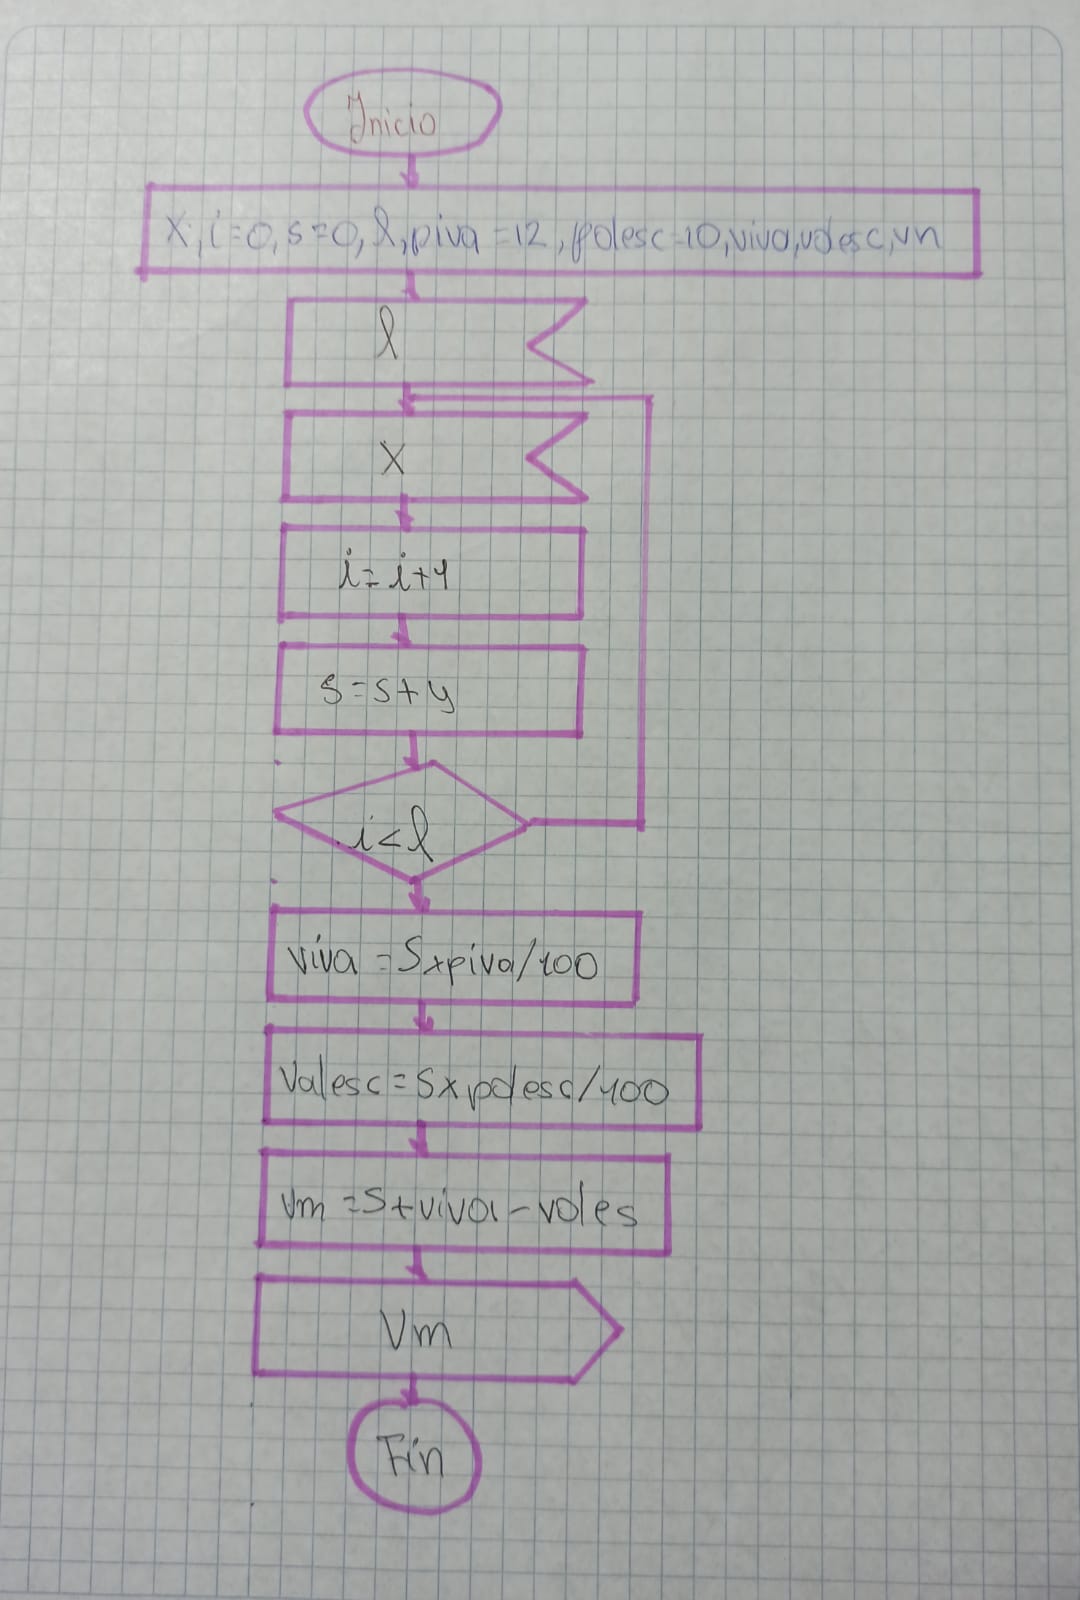 Inicio
X, i=0, s=0, l, piva=12, pdesc=10, viva, vdesc, vn
l
X
i=i+1
s=s+y
i<l
viva=Sxpiva/100
Vdesc=Sxpdesc/100
Vm=S+viva-vdes
Vm
Fin